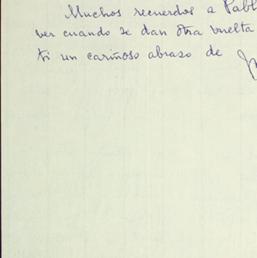 Muchos recuerdos a Pabl
ver cuando se dan otra vuelta
ti un cariñoso abrazo de